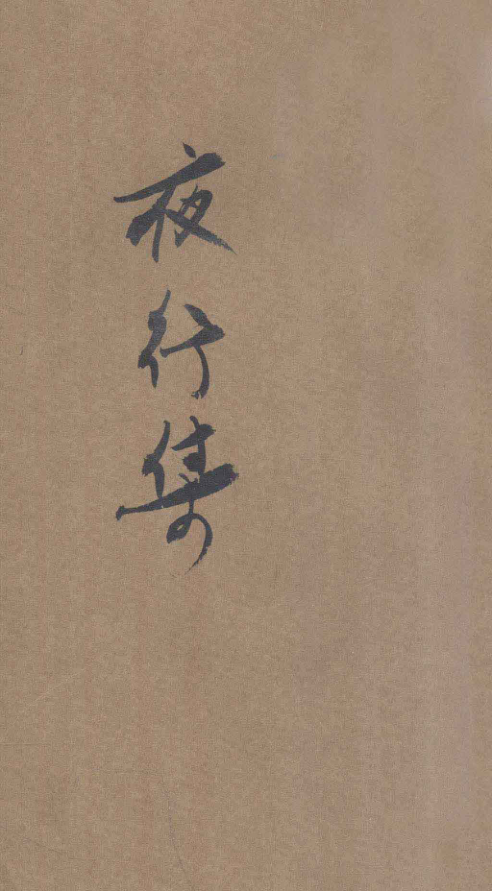 夜行集